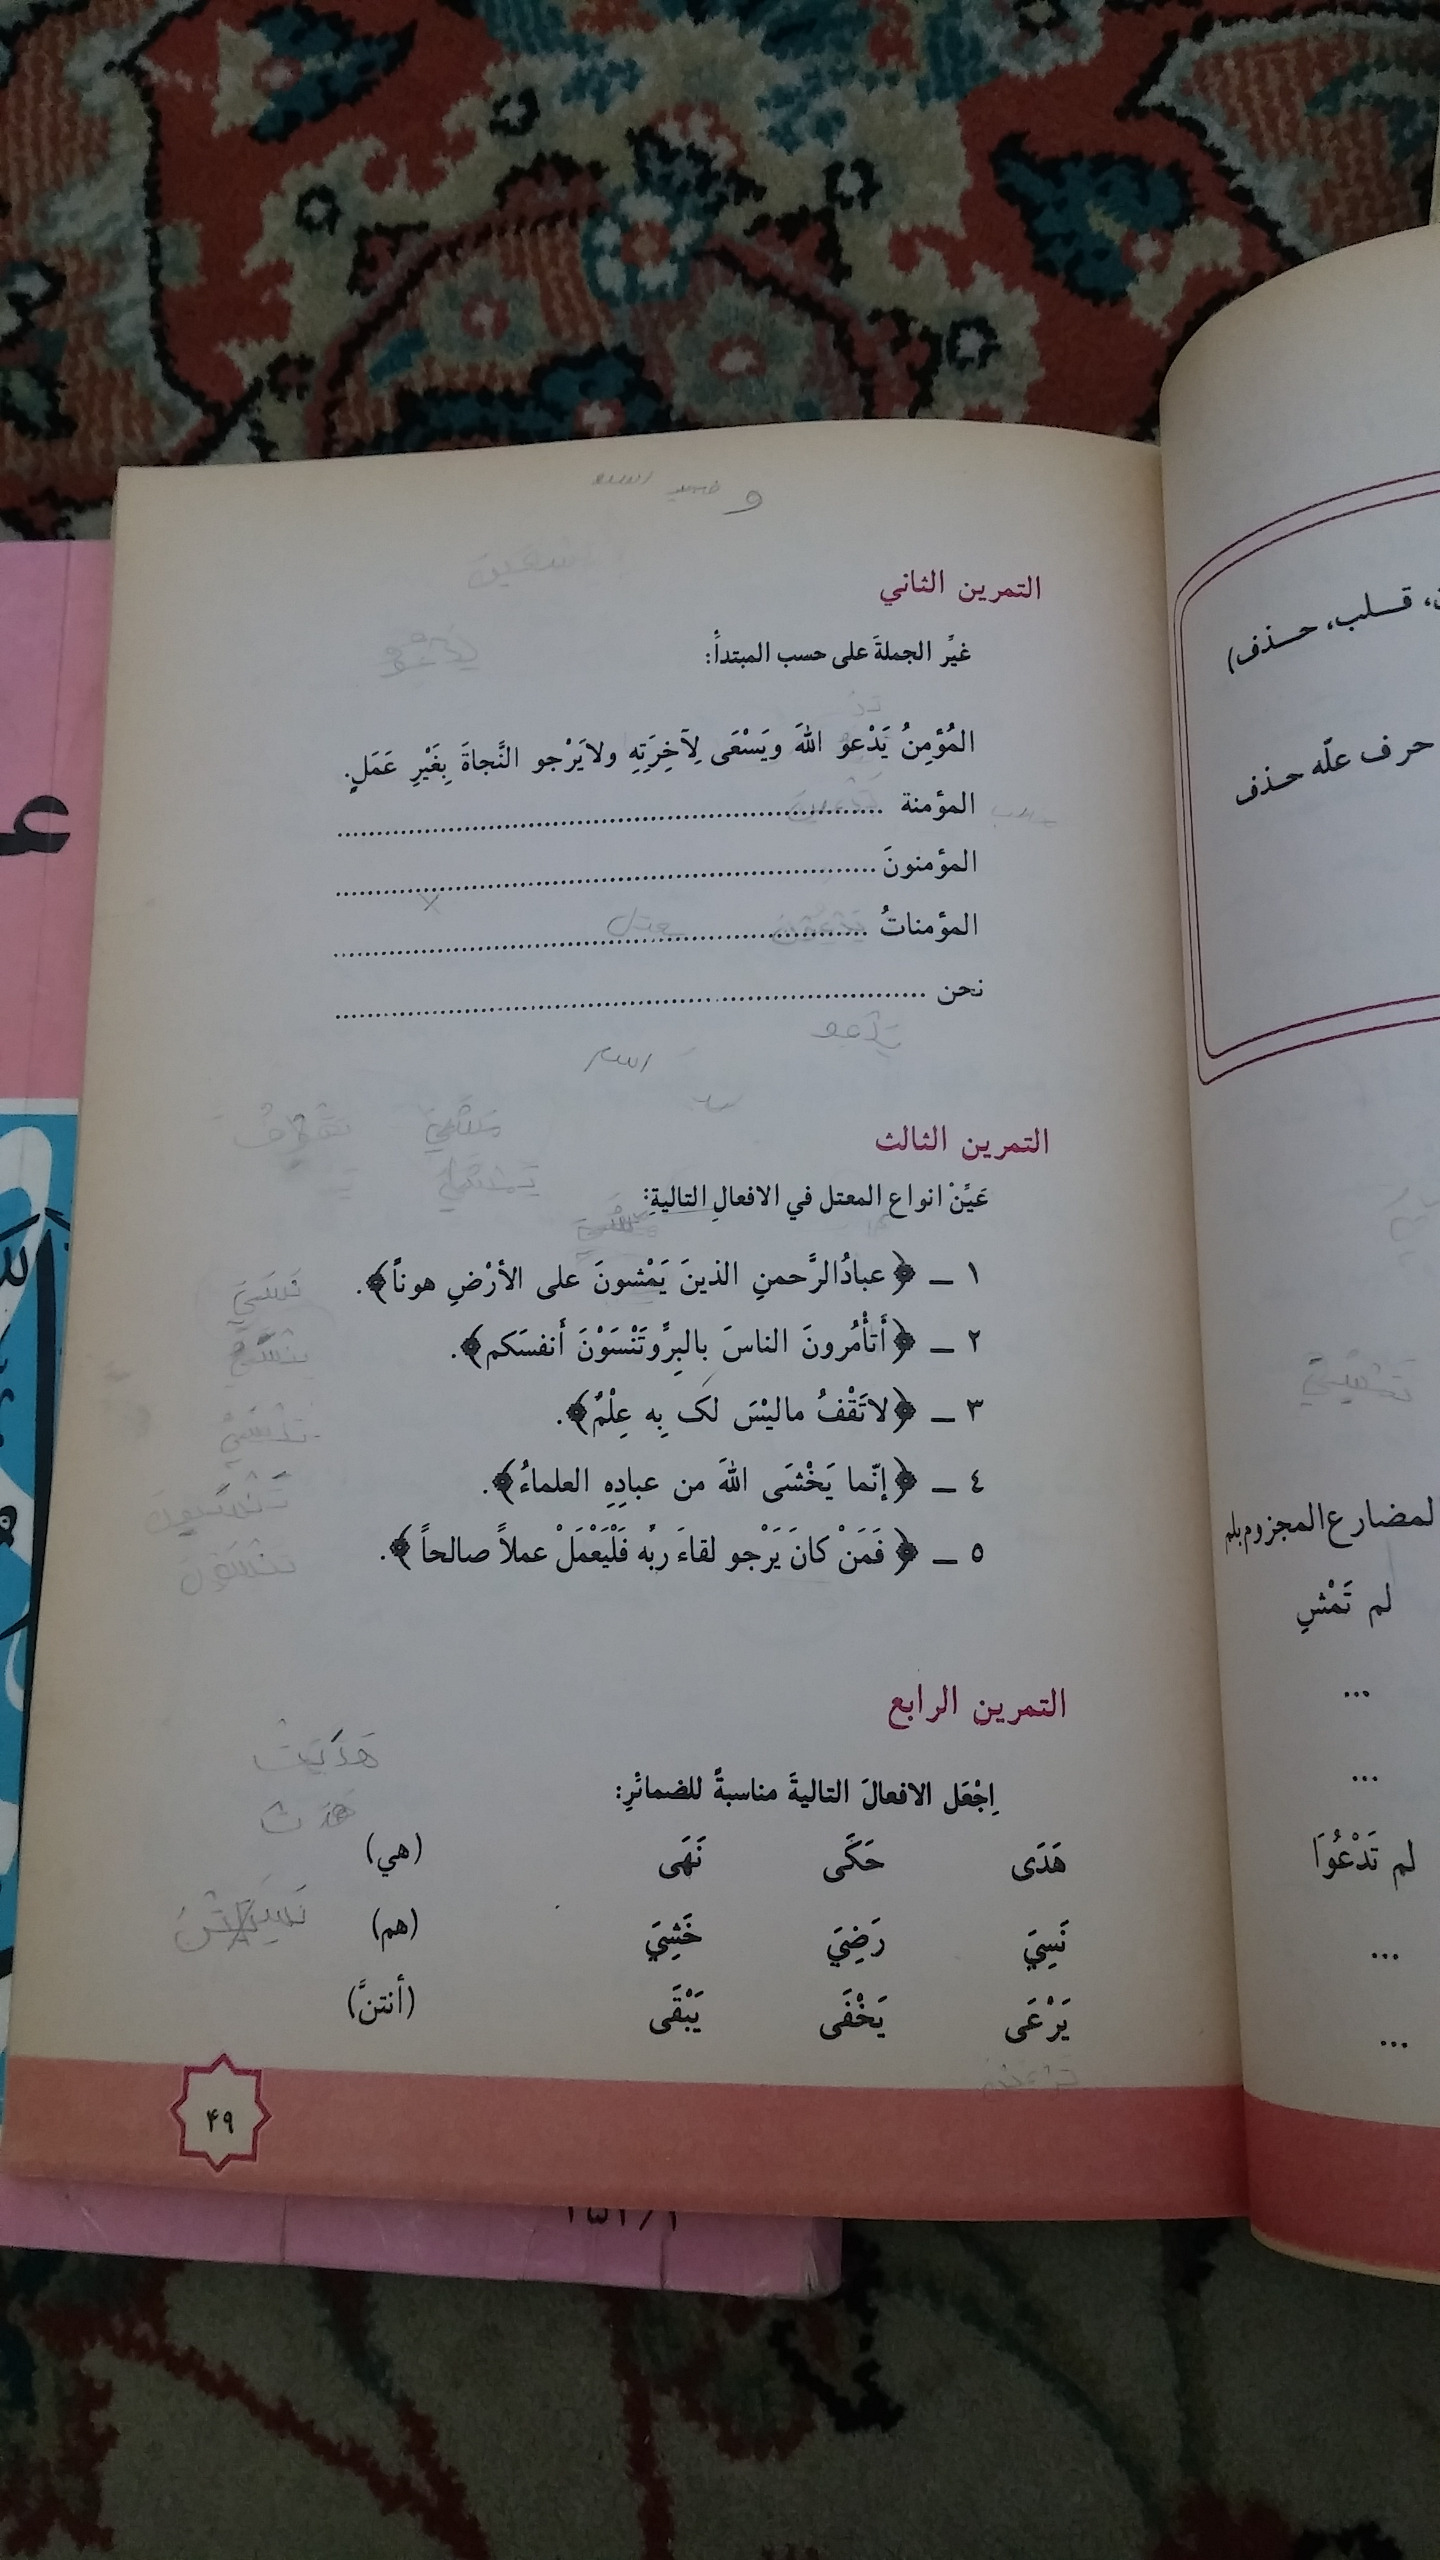 التمرين الثاني
غيِّر الجملةَ على حسب المبتدأ:
المُؤمِنُ يَدْعو اللهَ ويَسْعَى لِآخِرَتِهِ ولايَرْجو النَّجاةَ بِغَيْرِ عَمَلٍ.
المؤمنة ........................................
المؤمنونَ ........................................
المؤمناتُ ........................................
نحن ........................................
التمرين الثالث
عَيِّنْ انواع المعتل في الافعالِ التاليةِ:
١ ــ ﴿عبادُالرَّحمنِ الذينَ يَمْشونَ على الأرْضِ هوناً﴾.
٢ ــ ﴿أَتأْمُرونَ الناسَ بالبِرِّوتَنْسَوْنَ أَنفسَكم﴾.
٣ ــ ﴿لاتَقْفُ ماليْسَ لَک بِه عِلْمٌ﴾.
٤ ــ ﴿إنّما يَخْشَى اللهَ من عبادِهِ العلماءُ﴾.
٥ ــ ﴿فَمَنْ كانَ يَرْجو لقاءَ ربِّه فَلْيَعْمَلْ عملاً صالحاً﴾.
التمرين الرابع
اِجْعَل الافعالَ التاليةَ مناسبةً للضمائرِ:
هَدَى حَكَى نَهَى (هي)
نَسِيَ رَضِيَ خَشِيَ (هم)
يَرْعَى يَخْفَى يَبْقَى (أنتنَّ)
۴۹
قـلب، حـذف)
حرف علّه حذف
لمضارع المجزوم بلم
لم تَمْشِ
...
...
لم تَدْعُوَا
...
...